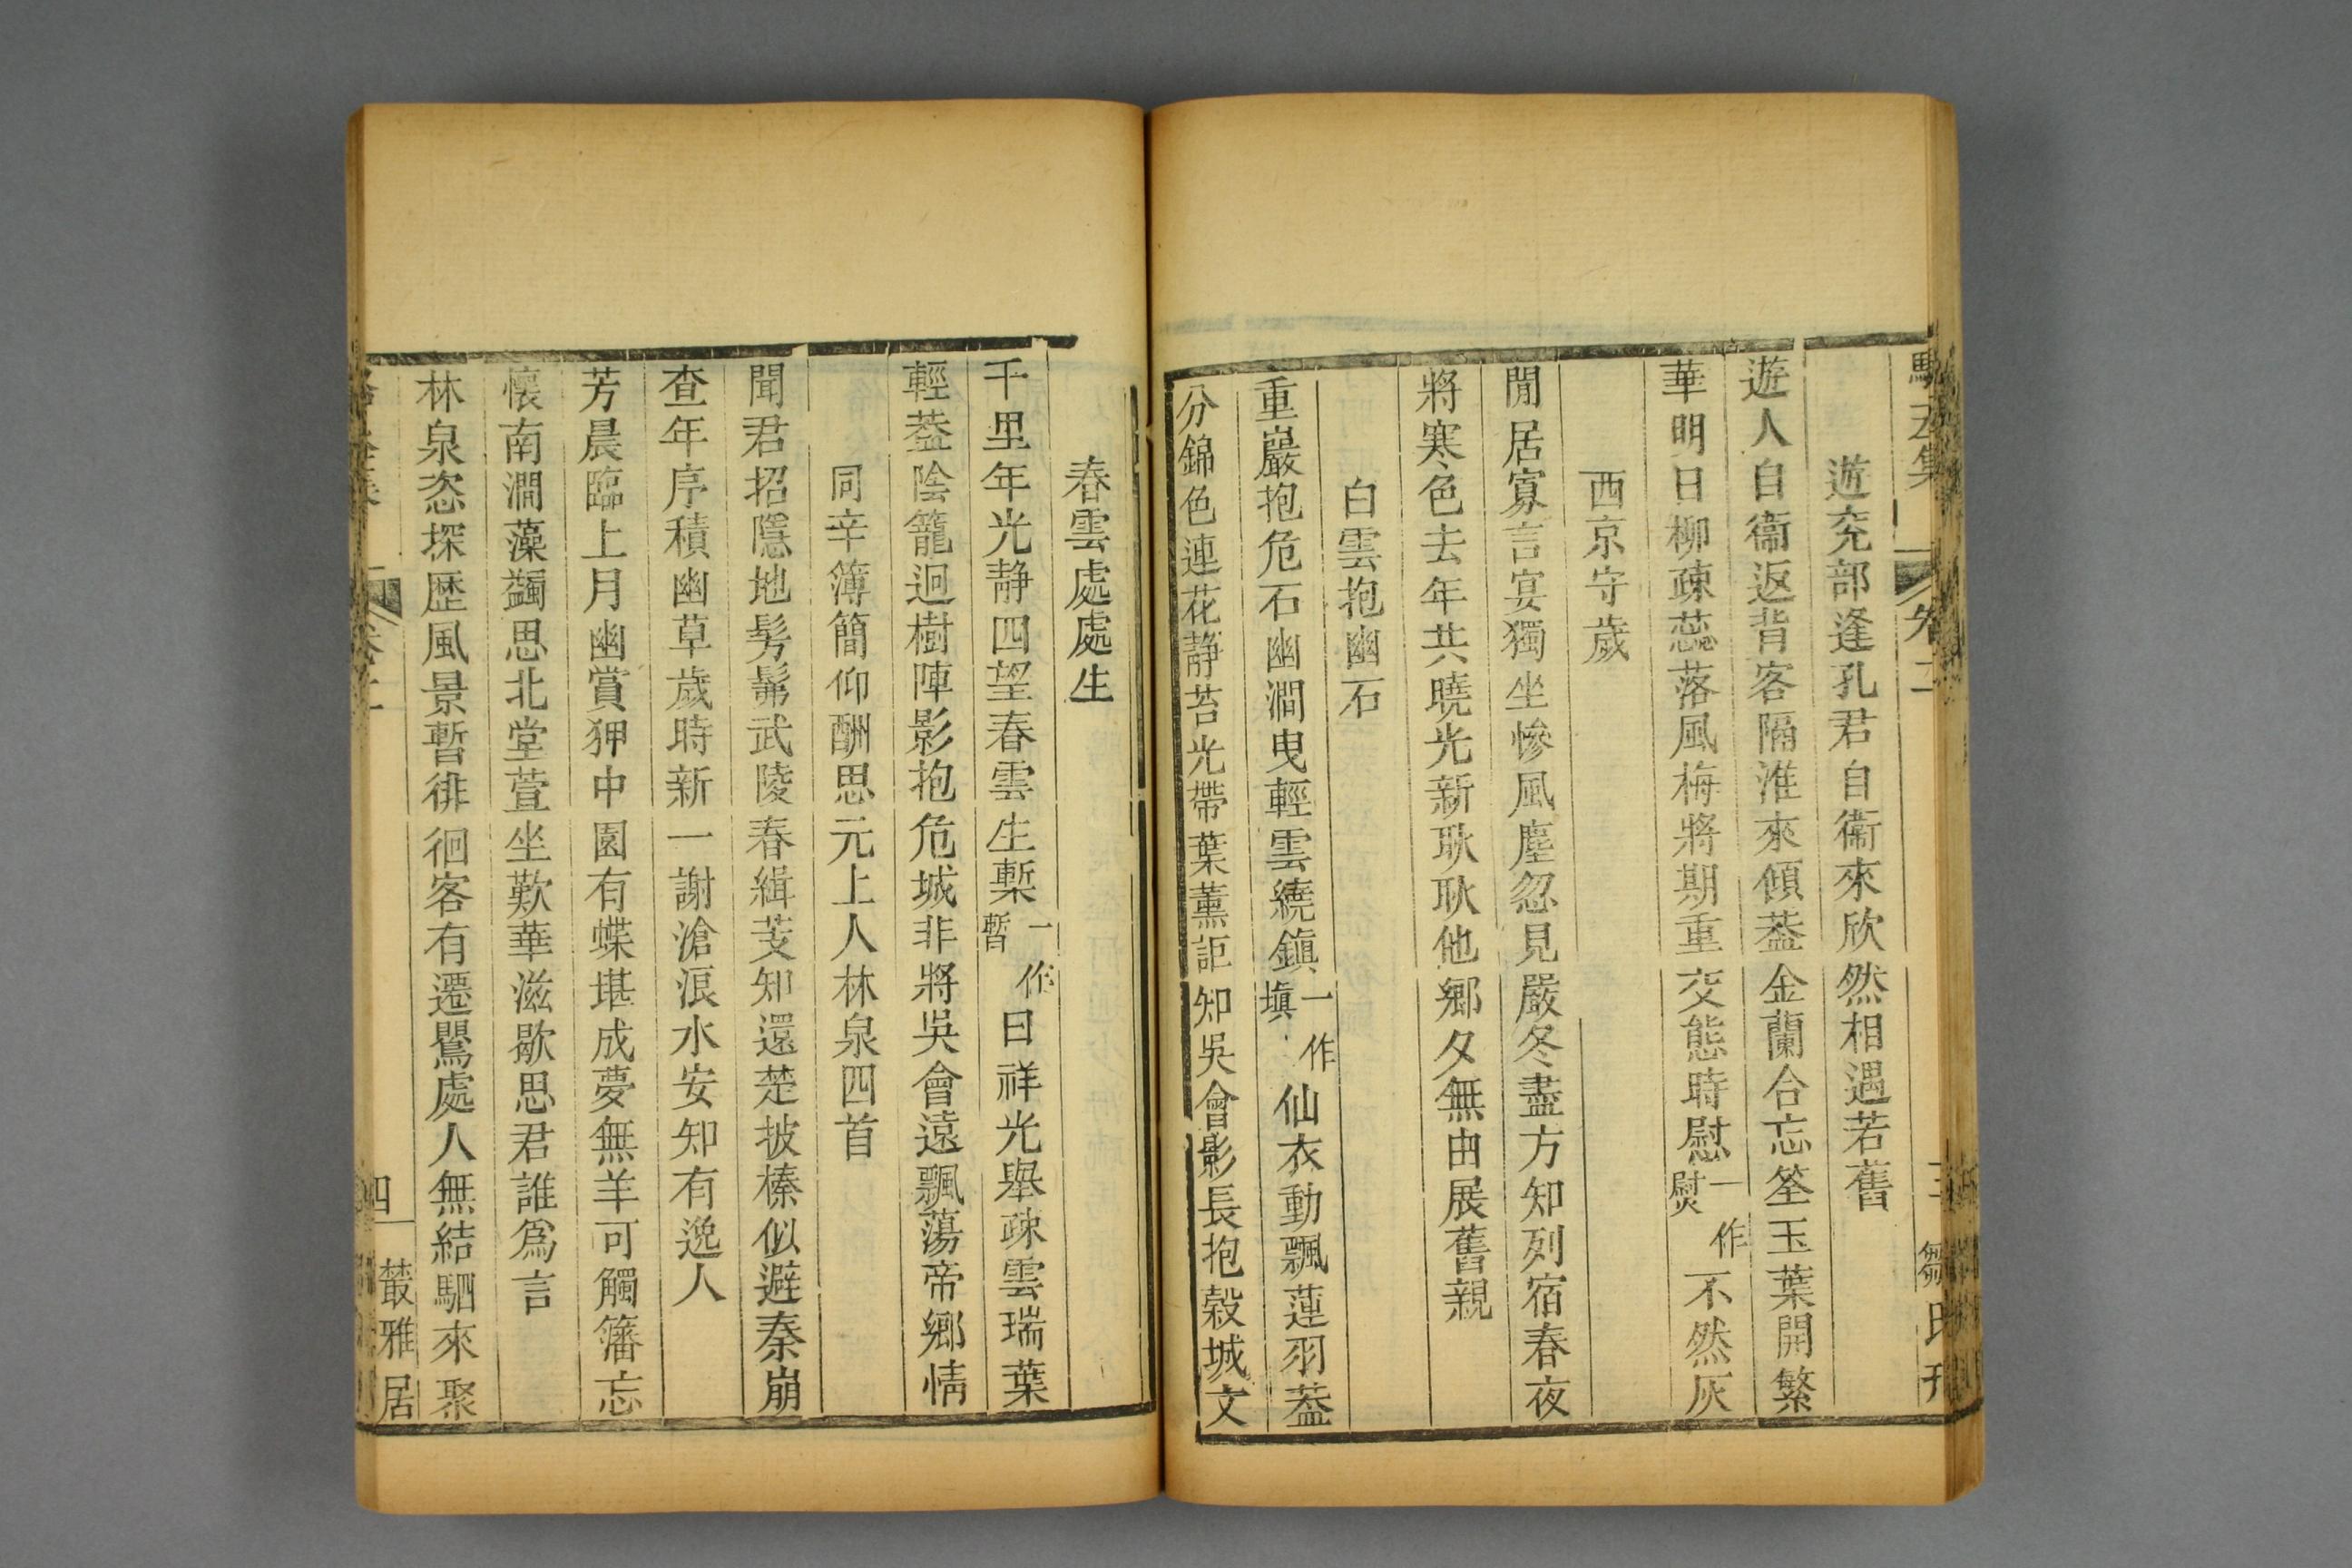 遊兖部逢孔君自衞來欣然相遇若舊
遊人自衞返背客隔淮來傾葢金蘭合忘筌玉葉開繁
華明日柳疎蕊落風梅將期重交態時慰一作熨不然灰
西京守歲
閒居寡言宴獨坐慘風塵忽見嚴冬盡方知列宿春夜
將寒色去年共曉光新耿耿他鄉夕無由展舊親
白雲抱幽石
重巖抱危石幽澗曳輕雲繞鎮一作塡仙衣動飄蓮羽葢
分錦色連花静苔光帶葉薰詎知吳會影長抱榖城文
春雲處處生
千里年光静四望春雲生槧一作暫日祥光舉疎雲瑞葉
輕葢陰籠迥樹陣影抱危城非將吳會遠飄蕩帝鄉情
同辛簿簡仰酬思元上人林泉四首
聞君招隱地髣髴武陵春緝芰知還楚披榛似避秦崩
查年序積幽草歲時新一謝滄浪水安知有逸人
芳晨臨上月幽賞狎中園有蝶堪成夢無羊可觸籓忘
懷南澗藻蠲思北堂萱坐歎華滋歇思君誰爲言
林泉恣探歷風景暫徘徊客有遷鶯處人無結駟來聚
四
叢雅居